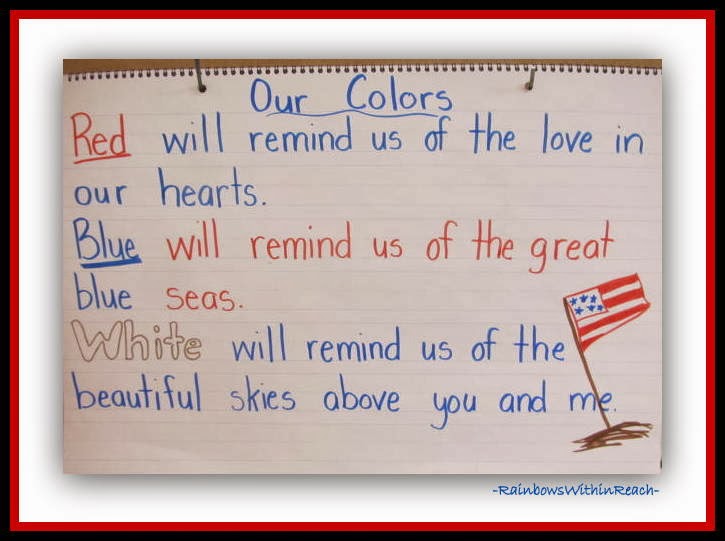 Our Colors
Red will remind us of the love in
our hearts.
Blue will remind us of the great
blue seas.
White will remind us of the
beautiful skies above you and me.
-RainbowsWithinReach-